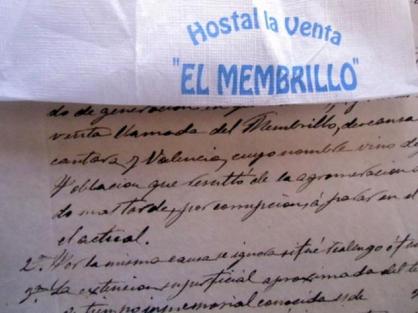 Hostal la Venta
"EL MEMBRILLO"
do de generacion en
venta llamada del Membrillo, descansa
cantara y Valencia, cuyo nombre vino d
Poblacion que resultó de la agromeracion
do mas tarde, por corrupcion, á parar en el
el actual.
2.ª Por la misma causa se ignora si fué realengo ó
3.ª La extencion superficial aproximada del t
tiempo inmemorial conocida